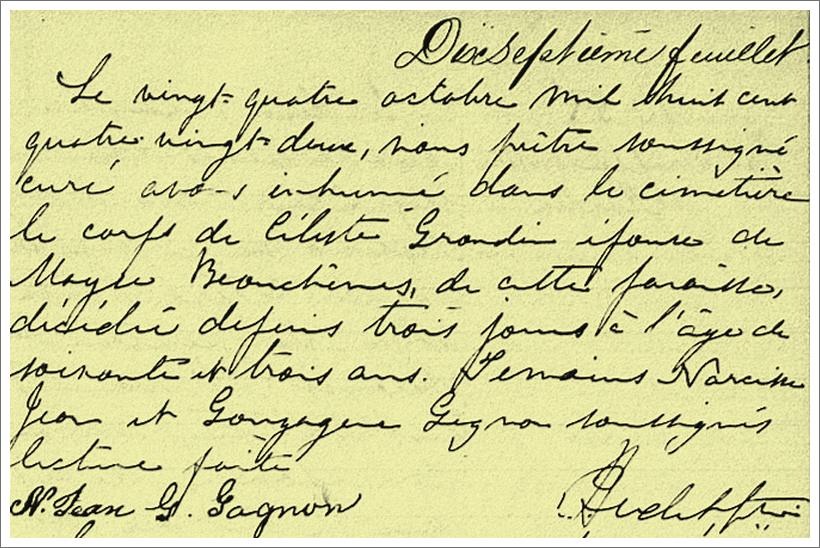 Dixseptième feuillet
Le vingt-quatre octobre mil huit cent
quatre vingt-deux, nous prêtre soussigné
curé avons inhumé dans le cimetière
le corps de Céleste Grondin épouse de
Moyse Beauchênes, de cette paroisse,
décédée depuis trois jours à l'âge de
soixante et trois ans. Temoins Narcisse
Jean et Gonzague Gagnon soussignés
lecture faite
N. Jean G. Gagnon